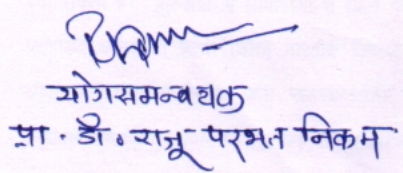 योगसमन्वयक
प्रा. डॉ. राजू परभत निकम